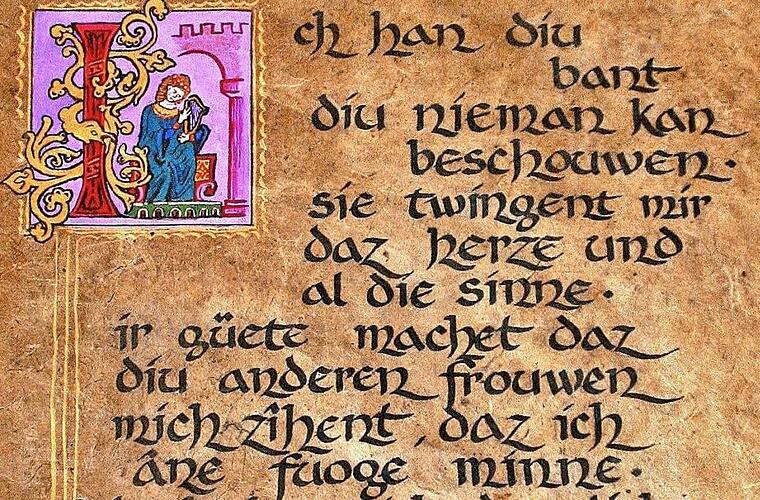 Ich han diu
bant
diu nieman kan
beschouwen.
sie twingent mir
daz herze und
al die sinne.
ir güete machet daz
diu anderen frouwen
mich zîhent, daz ich
âne fuoge minne.